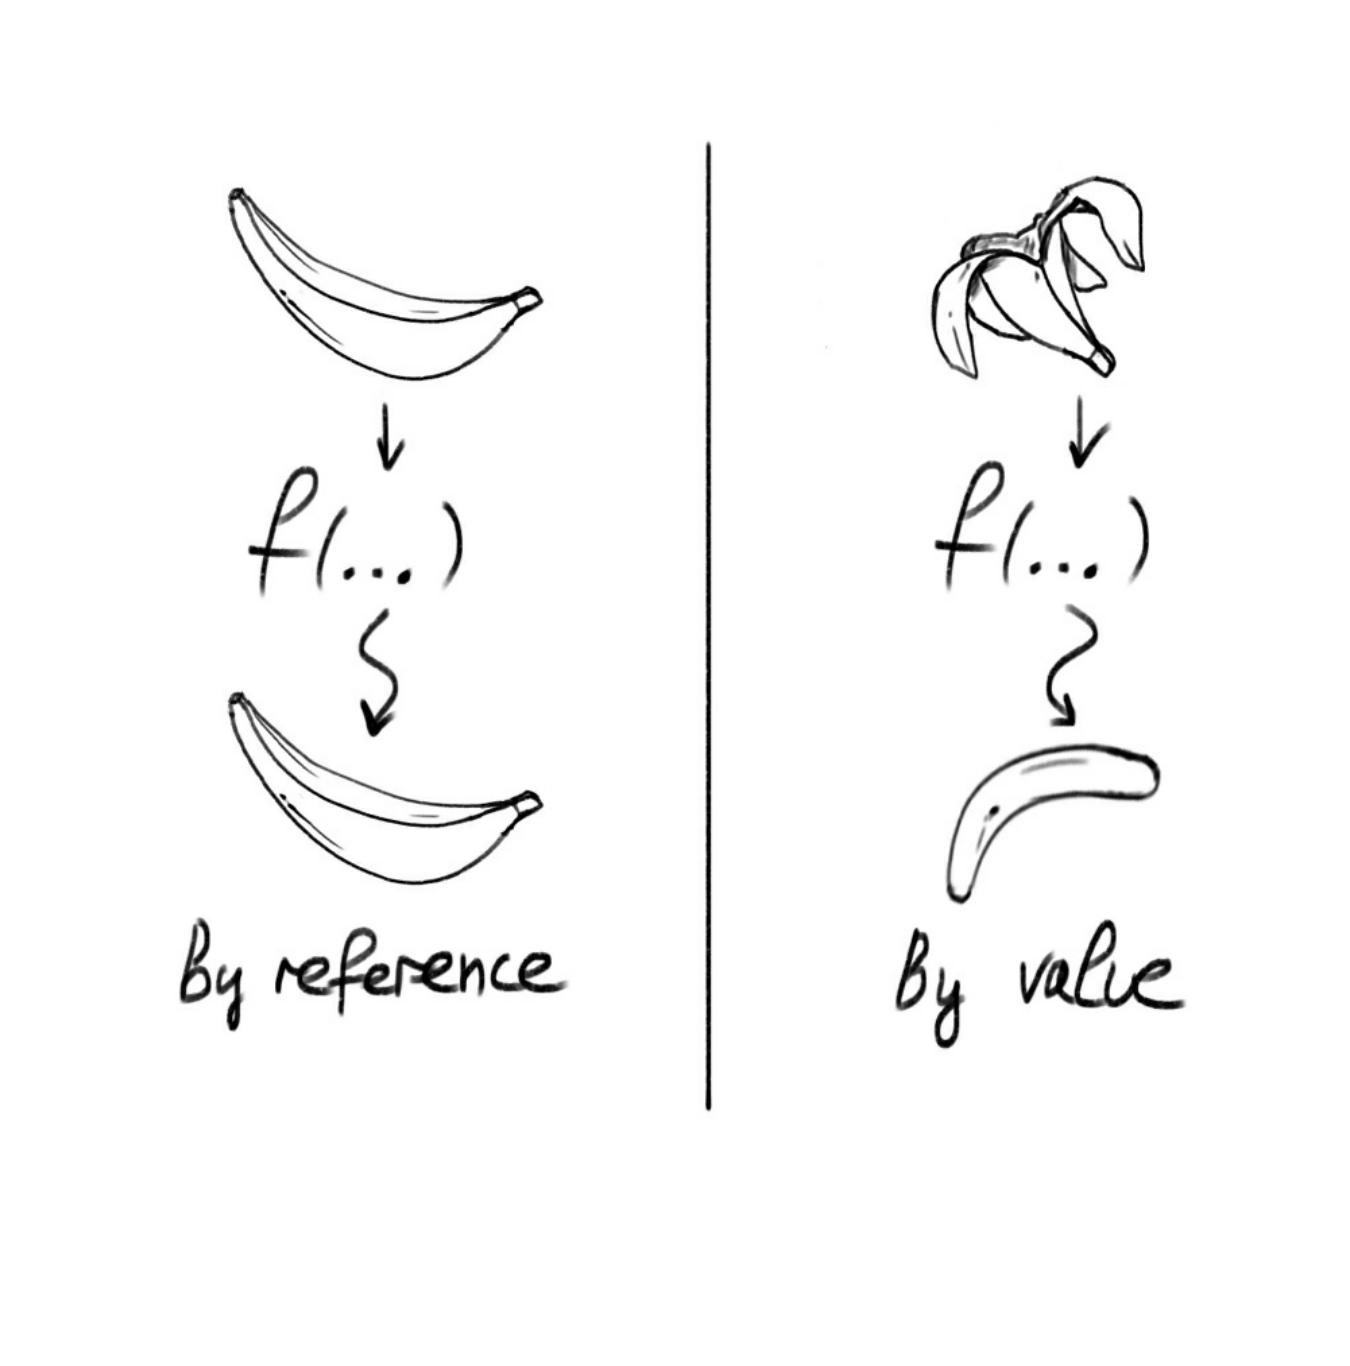 f(...)
By reference
f(...)
By value